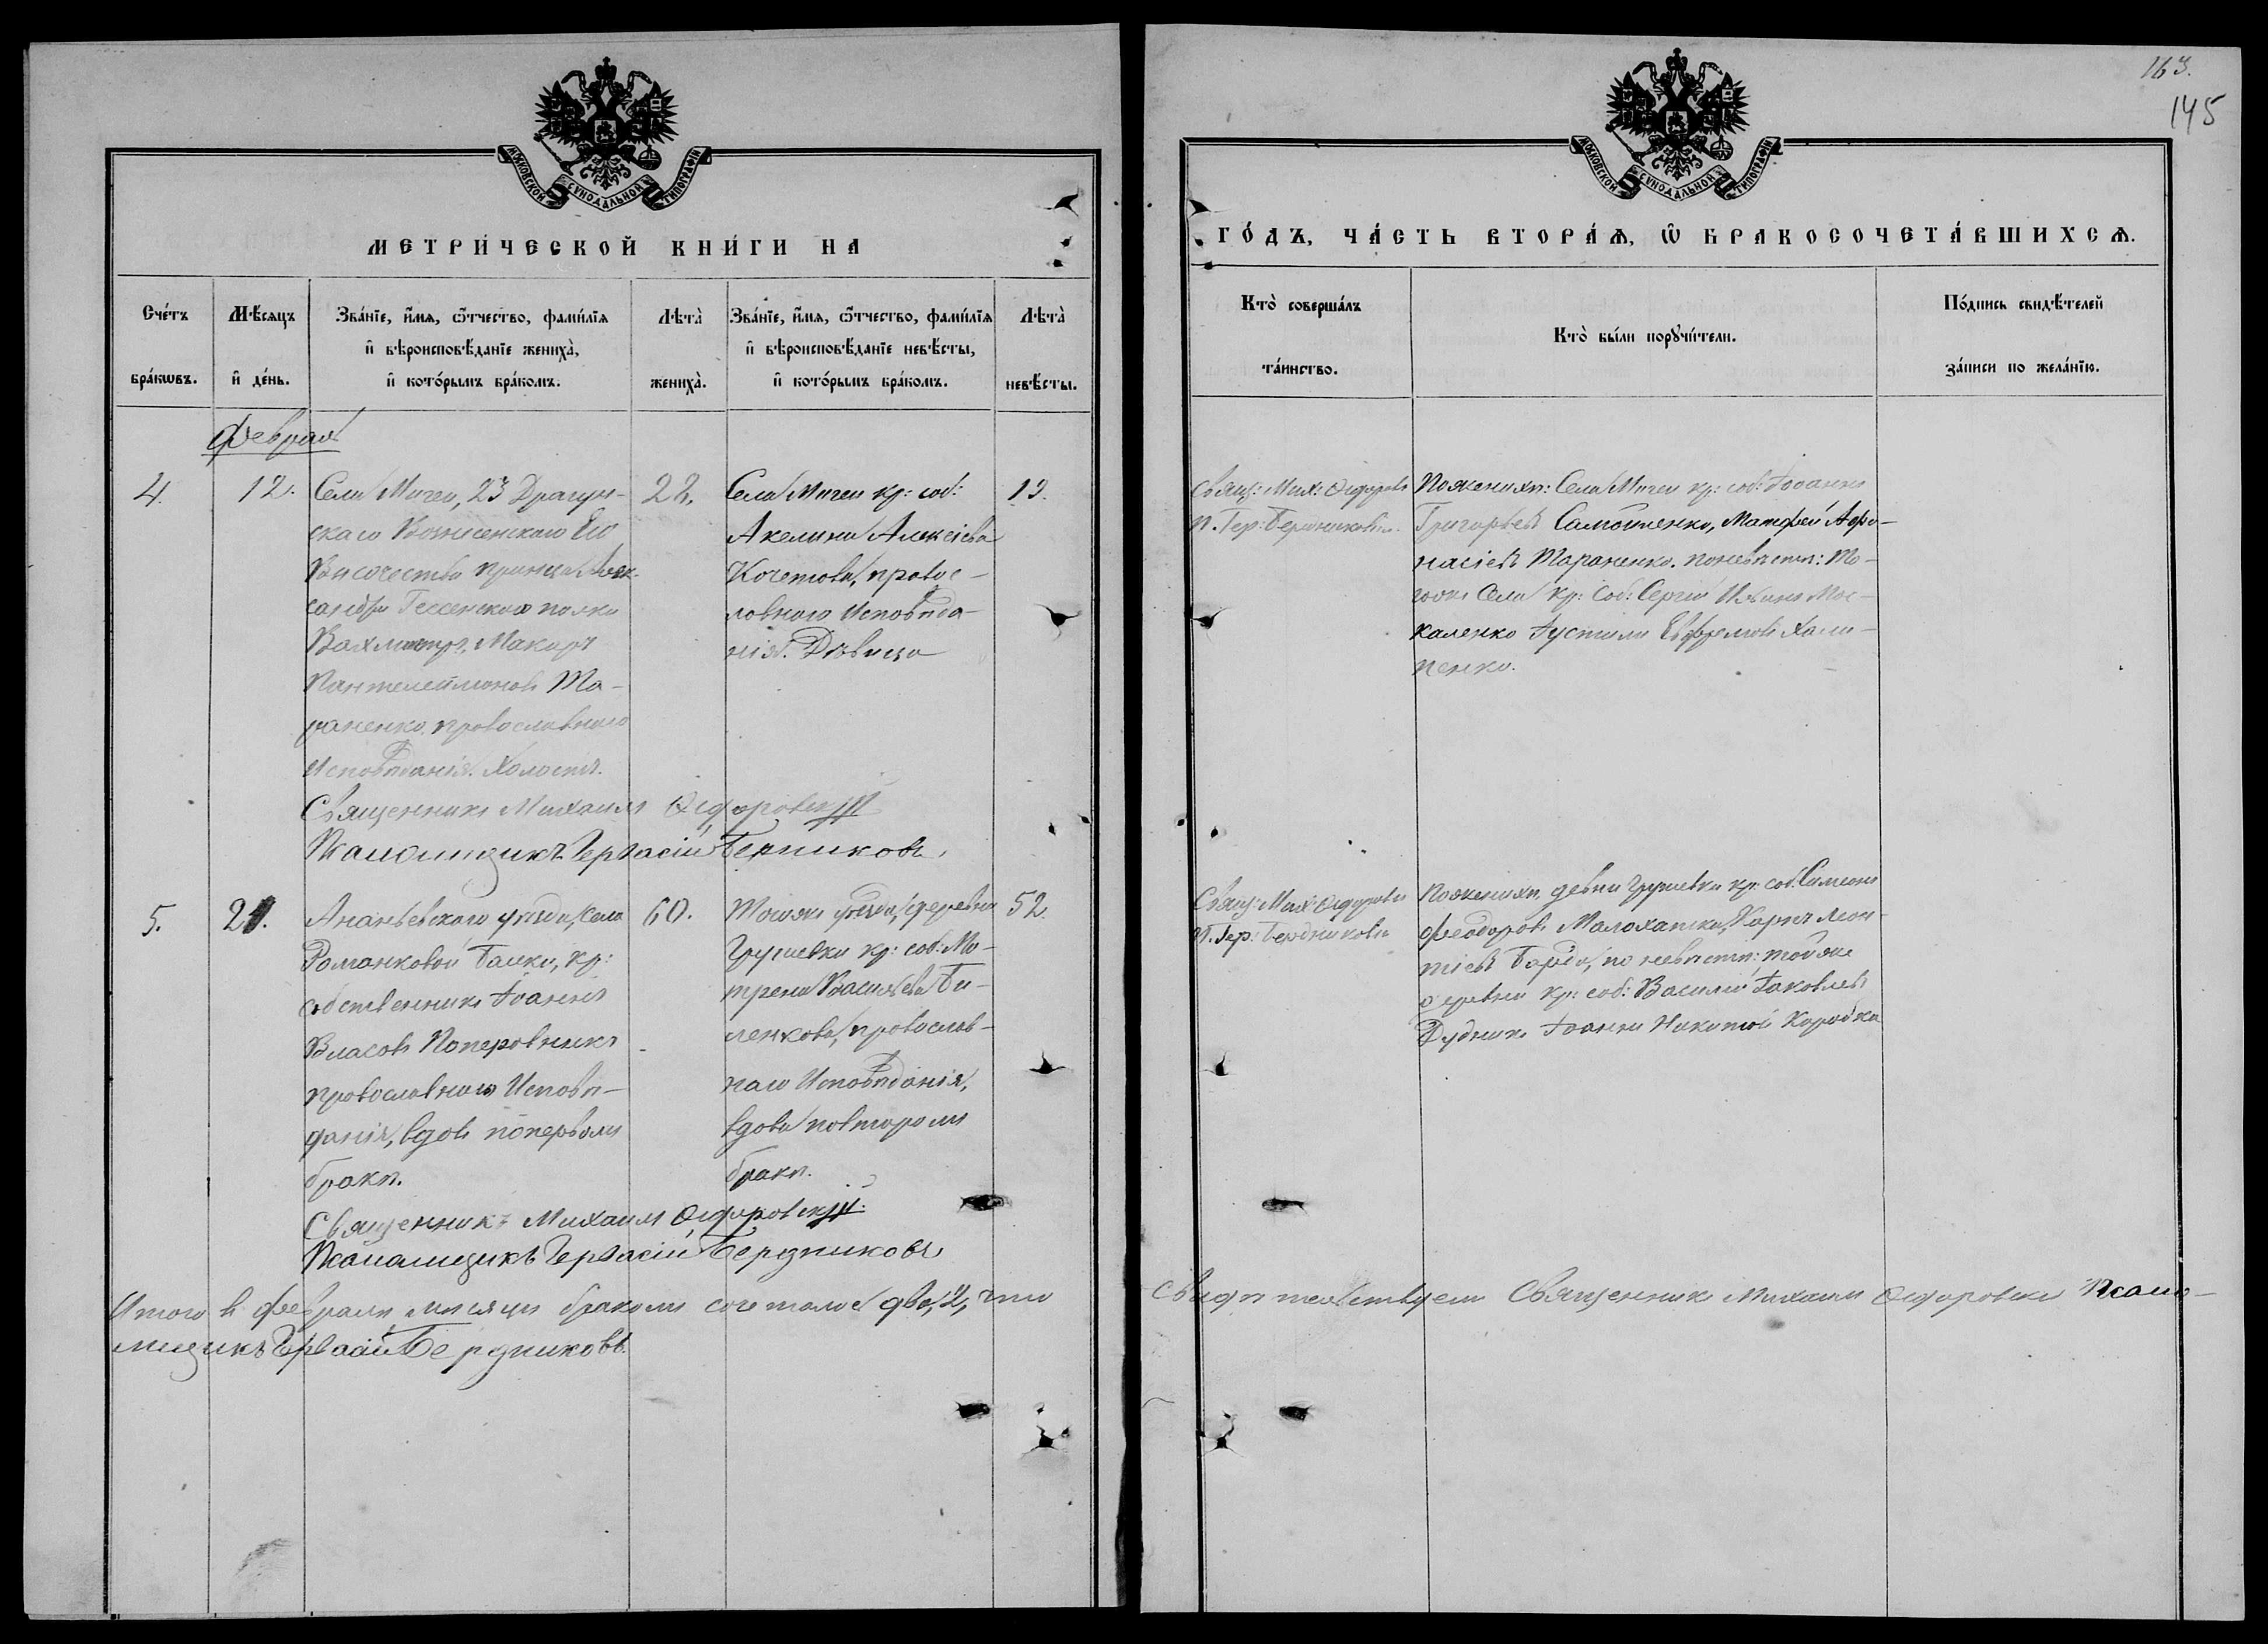 163.
145
МОСКОВСКОЙ СѴНОДАЛЬНОЙ ТИПОГРАФІИ
МЕТРИ́ЧЕСКОЙ КНИ́ГИ НА
Сче́тъ бра́кѡвъ.
Мѣ́сяцъ и҆ де́нь.
Зва́нїе, и҆́мѧ, ѻ҆́тчество, фами́лїѧ
и҆ вѣроисповѣ́данїе жениха̀,
и҆ кото́рымъ бра́комъ.
Лѣта̀ жениха̀.
Зва́нїе, и҆́мѧ, ѻ҆́тчество, фами́лїѧ
и҆ вѣроисповѣ́данїе невѣ́сты,
и҆ кото́рымъ бра́комъ.
Лѣта̀ невѣ́сты.
Февраль
4.
12.
Села Мигеи, 23 Драгун-
скаго Вознесенскаго Его
Высочества принца Алек-
сандра Гессенскаго полка
Вахмистръ, Макаръ
Пантелеймоновъ Та-
раненко, православнаго
Исповѣданія. Холостъ.
22.
Села Мигеи кр: соб:
Акелина Алексіева
Кочетова, правос-
лавнаго Исповѣда-
нія. Дѣвица
19.
Священникъ Михаилъ
Псаломщикъ Гервасій Бердниковъ.
5.
21.
Ананьевскаго уѣзда, села
Романковой Балки, кр:
собственникъ Іоаннъ
Власовъ Поперовникъ
православнаго Исповѣ-
данія, вдовъ по первомъ
бракѣ.
60.
Тогоже уѣзда, деревни
Грушевки кр: соб: Мо-
трена Васильева Би-
ленкова, православ-
наго Исповѣданія,
вдова по второмъ
бракѣ.
52.
Священникъ Михаилъ
Псаломщикъ Гервасій Бердниковъ
Итого въ февралѣ мѣсяцѣ бракомъ сочеталось два, 2, что
мщикъ Гервасій Бердниковъ.
МОСКОВСКОЙ СѴНОДАЛЬНОЙ ТИПОГРАФІИ
ГО́ДЪ, ЧА́СТЬ ВТОРА́Ѧ, Ѽ БРАКОСОЧЕТА́ВШИХСѦ.
Кто̀ соверша́лъ
та́инство.
Кто̀ бы́ли порꙋчи́тели.
По́дпись свидѣ́телей
за́писи по жела́нїю.
Свящ: Мих:
П. Гер: Бердниковъ
По женихѣ: Села Мигеи кр: соб: Іоаннъ
Григорьевъ Самойленко, Матфей Афо-
насіевъ Тараненко. по невѣстѣ: То-
гоже Села кр: Соб: Сергій Мос-
каленко Іустинъ Евфремовъ Хали-
пенко.
Свящ: Мих:
П. Гер: Бердниковъ
По женихѣ, де-вни Грушевки кр: соб: Симеонъ
Феодоровъ Малохатка, Карпъ Леон-
тіевъ по невѣстѣ: тойже
деревни кр: соб: Василій Іаковлевъ
Дудникъ Іоаннъ Никитовъ Коробка
Свидѣтельствуемъ Священникъ Михаилъ Псало-